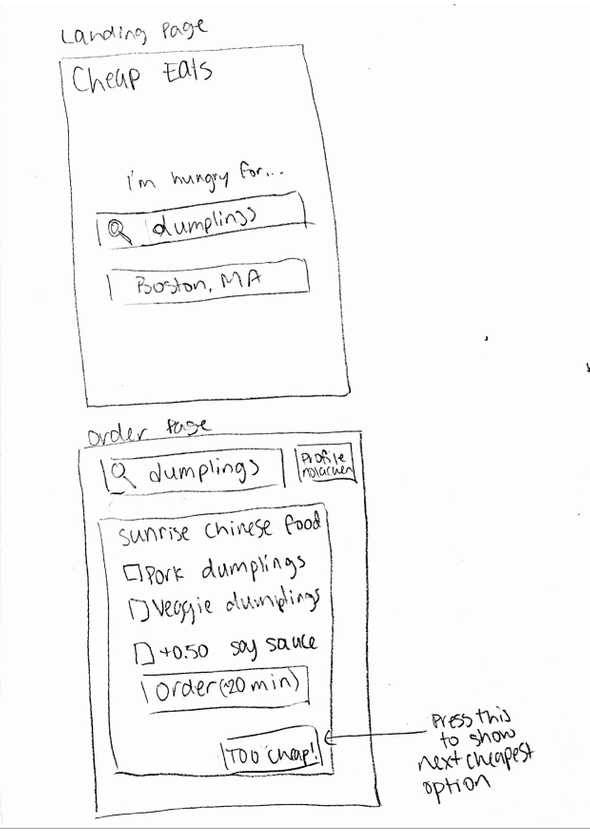 Landing Page
Cheap Eats
I'm hungry for...
dumplings
Boston, MA
Order Page
dumplings
Profile
nolachen
sunrise chinese food
Pork dumplings
Veggie dumplings
+0.50 soy sauce
Order (~20 min)
Too cheap!
Press this
to show
next cheapest
option